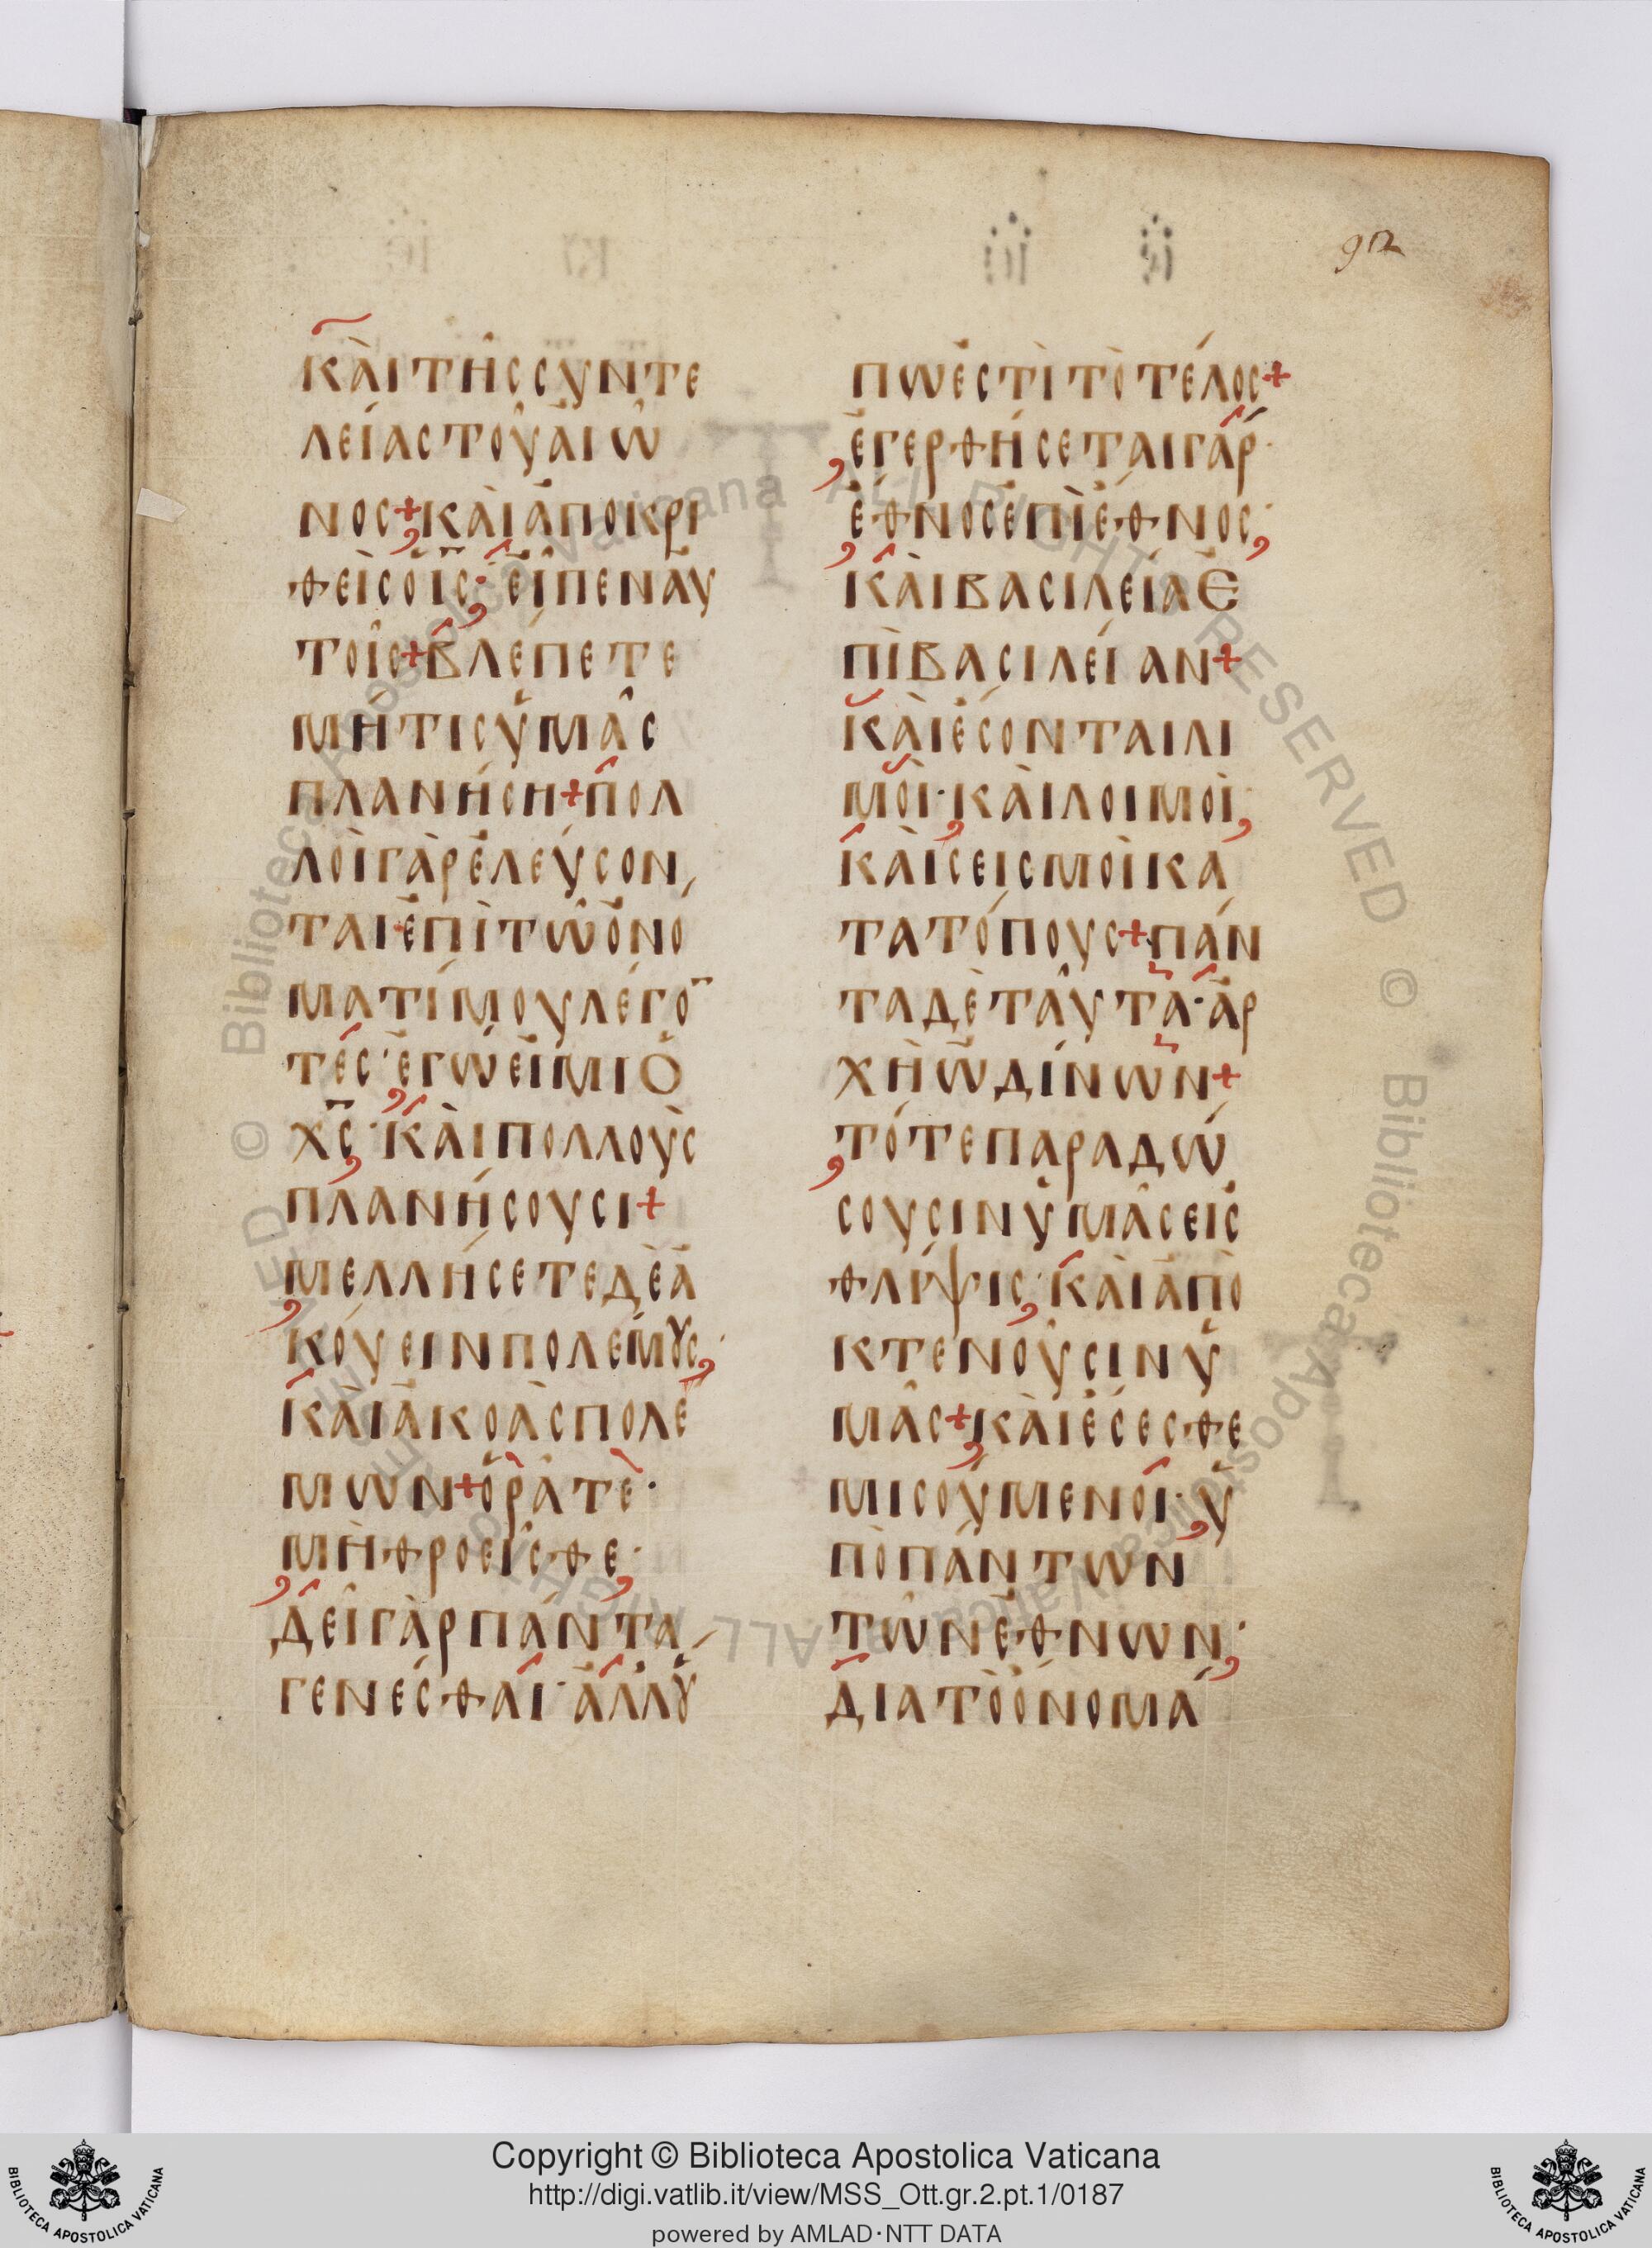 912
ΚΑΙΤΗϹϹΥΝΤΕ
ΛΕΙΑϹΤΟΥΑΙΩ
ΝΟϹ+ΚΑΙΑΠΟΚΡΙ
ΘΕΙϹΟΙϹ·ΕΙΠΕΝΑΥ
ΤΟΙϹ+ΒΛΕΠΕΤΕ
ΜΗΤΙϹΥΜΑϹ
ΠΛΑΝΗϹΗ+ΠΟΛ
ΛΟΙΓΑΡΕΛΕΥϹΟΝ
ΤΑΙΕΠΙΤΩΟΝΟ
ΜΑΤΙΜΟΥΛΕΓΟ̅
ΤΕϹ·ΕΓΩΕΙΜΙΟ
Χ̅Ϲ̅·ΚΑΙΠΟΛΛΟΥϹ
ΠΛΑΝΗϹΟΥϹΙ+
ΜΕΛΛΗϹΕΤΕΔΕΑ
ΚΟΥΕΙΝΠΟΛΕΜȢϹ·
ΚΑΙΑΚΟΑϹΠΟΛΕ
ΜΩΝ+ΟΡΑΤΕ·
ΜΗΘΡΟΕΙϹΘΕ·
ΔΕΙΓΑΡΠΑΝΤΑ
ΓΕΝΕϹΘΑΙ·ΑΛΛȢ
ΠΩΕϹΤΙΤΟΤΕΛΟϹ+
ΕΓΕΡΘΗϹΕΤΑΙΓΑΡ·
ΕΘΝΟϹΕΠΙΕΘΝΟϹ·
ΚΑΙΒΑϹΙΛΕΙΑΕ
ΠΙΒΑϹΙΛΕΙΑΝ+
ΚΑΙΕϹΟΝΤΑΙΛΙ
ΜΟΙ·ΚΑΙΛΟΙΜΟΙ·
ΚΑΙϹΕΙϹΜΟΙΚΑ
ΤΑΤΟΠΟΥϹ+ΠΑΝ
ΤΑΔΕΤΑΥΤΑ·ΑΡ
ΧΗΩΔΙΝΩΝ+
ΤΟΤΕΠΑΡΑΔΩ
ϹΟΥϹΙΝΥΜΑϹΕΙϹ
ΘΛΙΨΙϹ·ΚΑΙΑΠΟ
ΚΤΕΝΟΥϹΙΝΥ
ΜΑϹ+ΚΑΙΕϹΕϹΘΕ
ΜΙϹΟΥΜΕΝΟΙ·Υ
ΠΟΠΑΝΤΩΝ
ΤΩΝΕΘΝΩΝ·
ΔΙΑΤΟΟΝΟΜΑ
BIBLIOTECA APOSTOLICA VATICANA
Copyright © Biblioteca Apostolica Vaticana
http://digi.vatlib.it/view/MSS_Ott.gr.2.pt.1/0187
powered by AMLAD·NTT DATA
BIBLIOTECA APOSTOLICA VATICANA